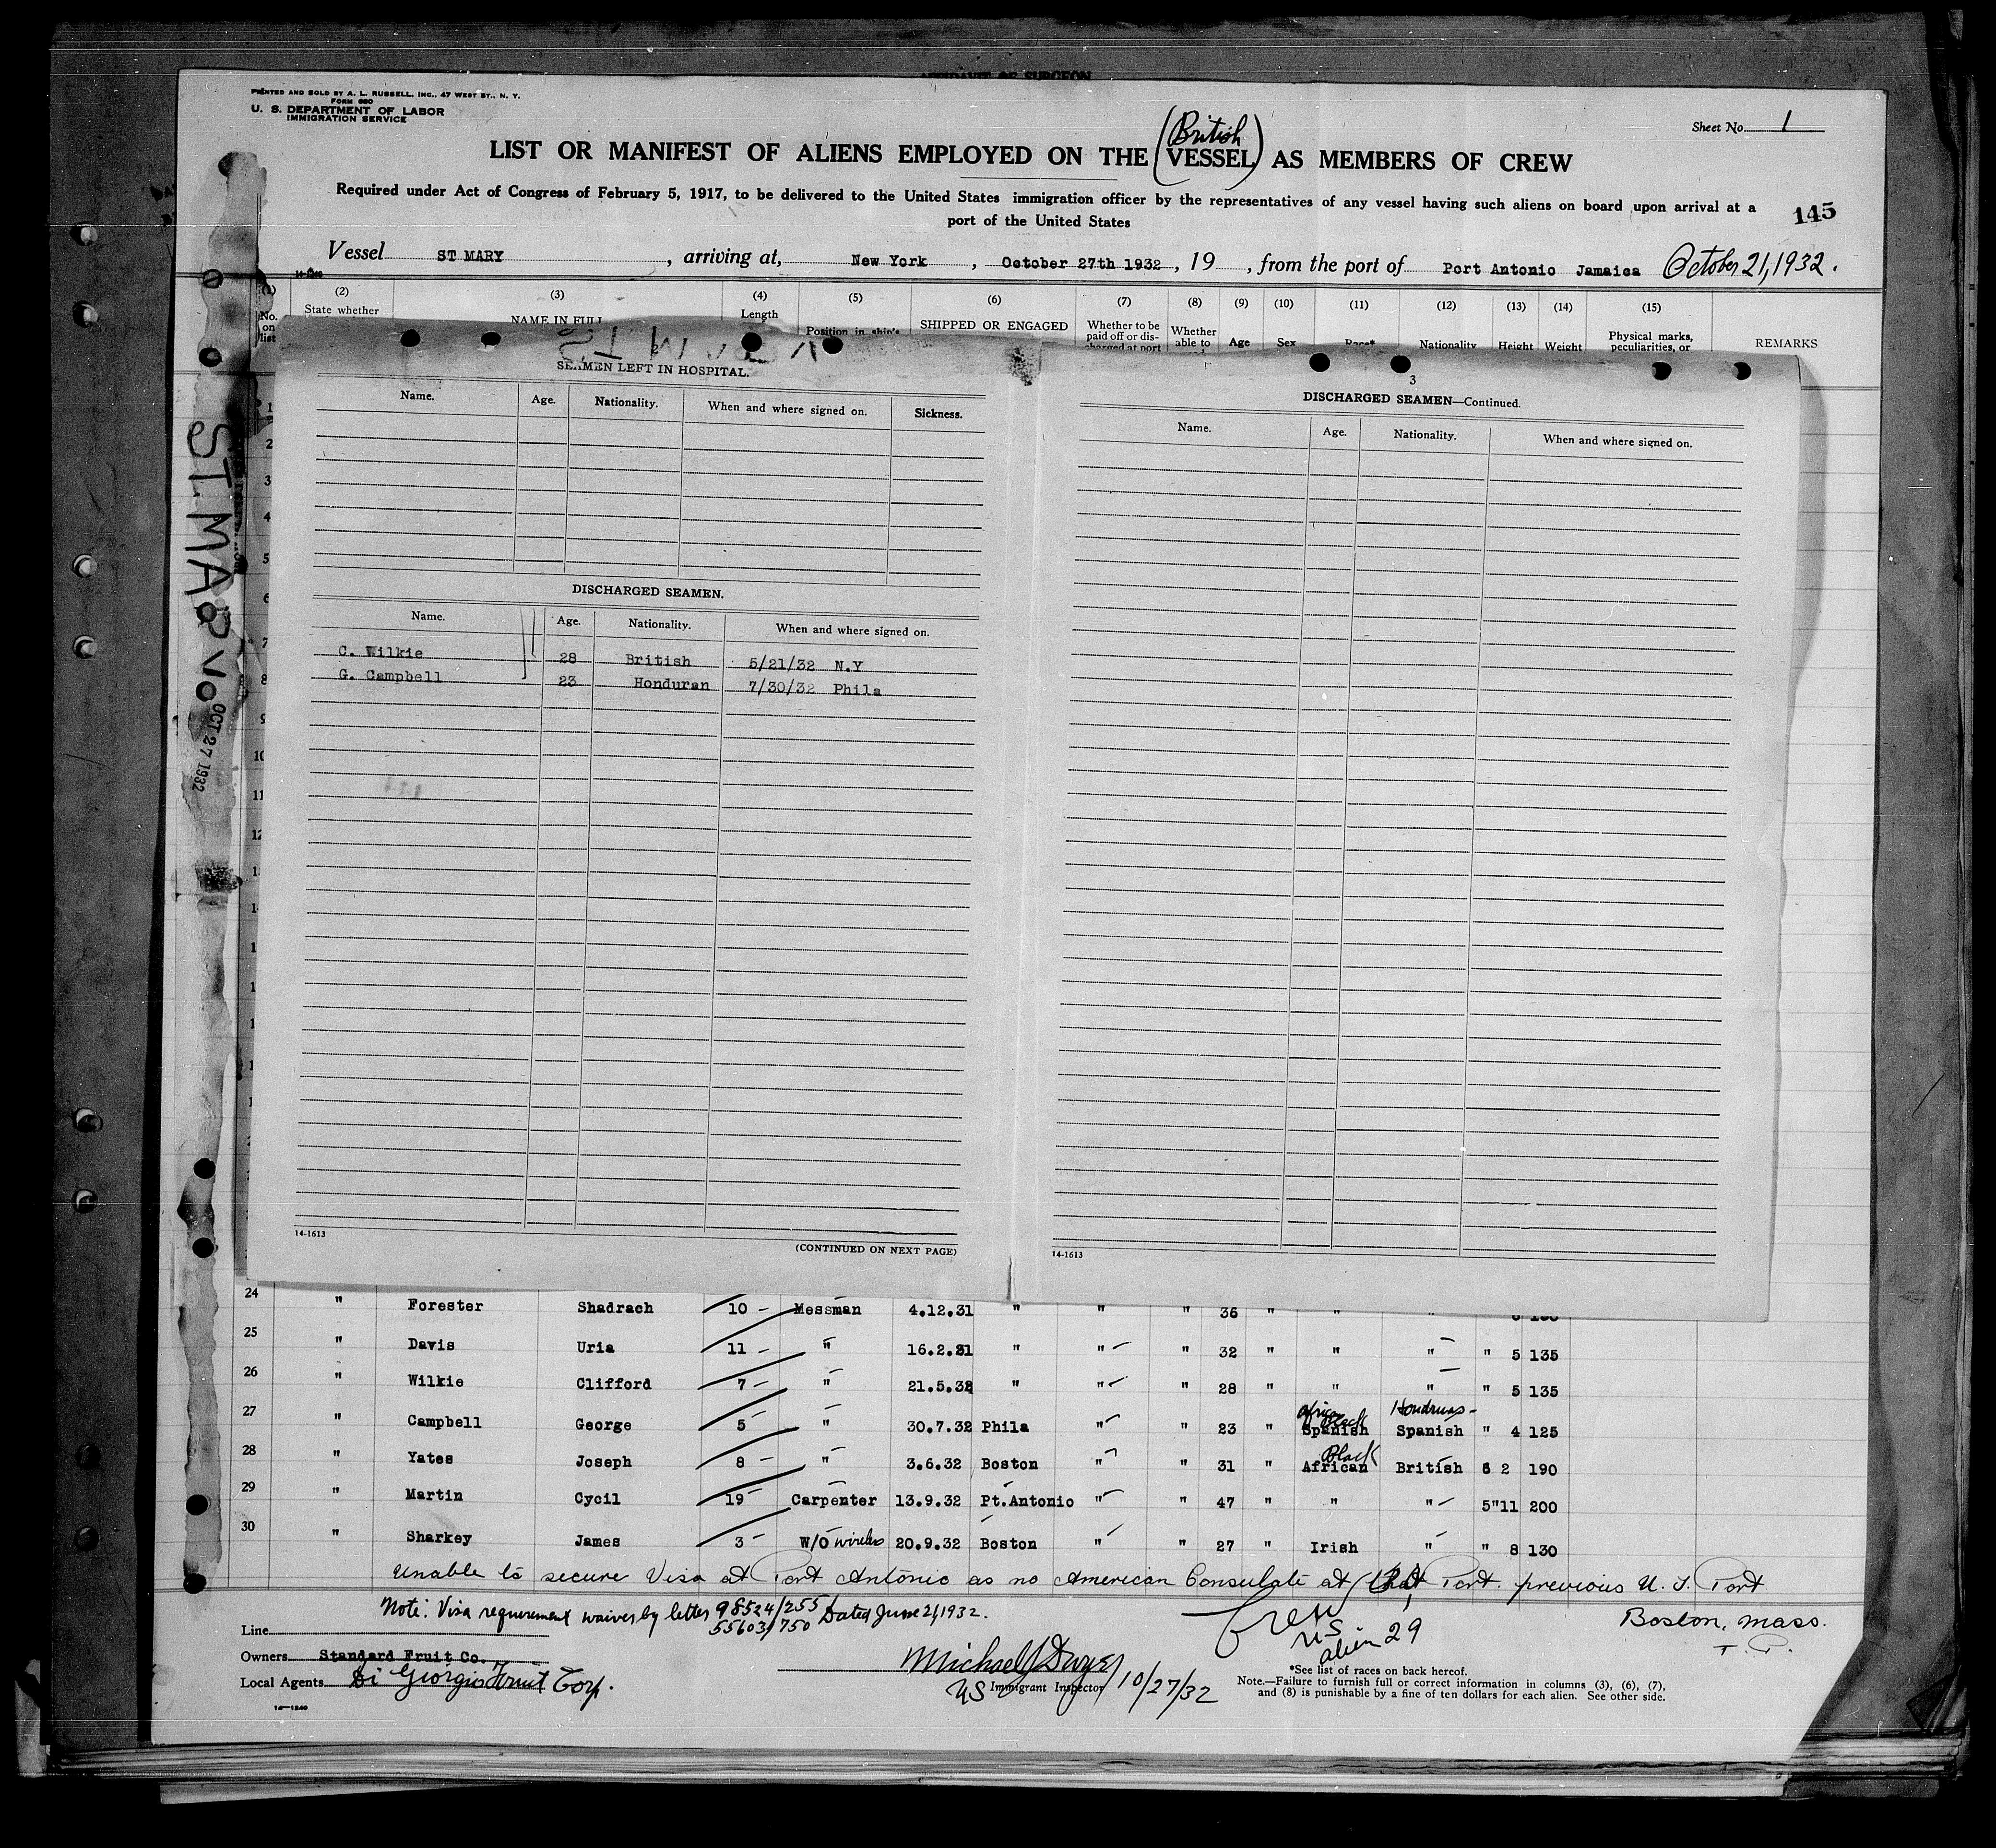 AFFIDAVIT OF SURGEON
PRINTED AND SOLD BY A. L. RUSSELL, INC., 47 WEST ST., N. Y.
FORM 680
U. S. DEPARTMENT OF LABOR
IMMIGRATION SERVICE
Sheet No. 1
(British)
LIST OR MANIFEST OF ALIENS EMPLOYED ON THE VESSEL AS MEMBERS OF CREW
Required under Act of Congress of February 5, 1917, to be delivered to the United States immigration officer by the representatives of any vessel having such aliens on board upon arrival at a
port of the United States
145
Vessel ST MARY, arriving at, New York, October 27th 1932, 19 , from the port of Port Antonio Jamaica October 21, 1932.
14-1240
(1) (2) (3) (4) (5) (6) (7) (8) (9) (10) (11) (12) (13) (14) (15)
No. on list State whether NAME IN FULL Length Position in ship's SHIPPED OR ENGAGED Whether to be paid off or discharged at port Whether able to Age Sex Race* Nationality Height Weight Physical marks, peculiarities, or REMARKS
ST. MARY
OCT 27 1932
SEAMEN LEFT IN HOSPITAL.
Name. Age. Nationality. When and where signed on. Sickness.
DISCHARGED SEAMEN.
Name. Age. Nationality. When and where signed on.
C. Wilkie 28 British 5/21/32 N.Y
G. Campbell 23 Honduran 7/30/32 Phila
14-1613
(CONTINUED ON NEXT PAGE)
3
DISCHARGED SEAMEN—Continued.
Name. Age. Nationality. When and where signed on.
14-1613
1
2
3
4
5
6
7
8
9
10
11
12
24 " Forester Shadrach 10 - Messman 4.12.31 " " " 36 " " "
25 " Davis Uria 11 - " 16.2.31 " " " 32 " " " " 5 135
26 " Wilkie Clifford 7 - " 21.5.32 " " " 28 " " " " 5 135
African Black Honduras -
27 " Campbell George 5 - " 30.7.32 Phila " " 23 " Spanish Spanish " 4 125
Black
28 " Yates Joseph 8 - " 3.6.32 Boston " " 31 " African British 6 2 190
29 " Martin Cycil 19 - Carpenter 13.9.32 Pt.Antonio " " 47 " " " 5"11 200
30 " Sharkey James 3 - W/O wireless 20.9.32 Boston " " 27 " Irish " " 8 130
Unable to secure Visa at Port Antonio as no American Consulate at that Port. previous U. S. Port
Boston, Mass.
Note: Visa requirement waiver by letter 98524/255 Dated June 21, 1932.
55603/750
Line
Owners Standard Fruit Co.
Local Agents Di Giorgio Fruit Corp.
14-1240
Crew
US
alien 29
Michael J Dwyer
US Immigrant Inspector 10/27/32
*See list of races on back hereof.
Note.—Failure to furnish full or correct information in columns (3), (6), (7),
and (8) is punishable by a fine of ten dollars for each alien. See other side.